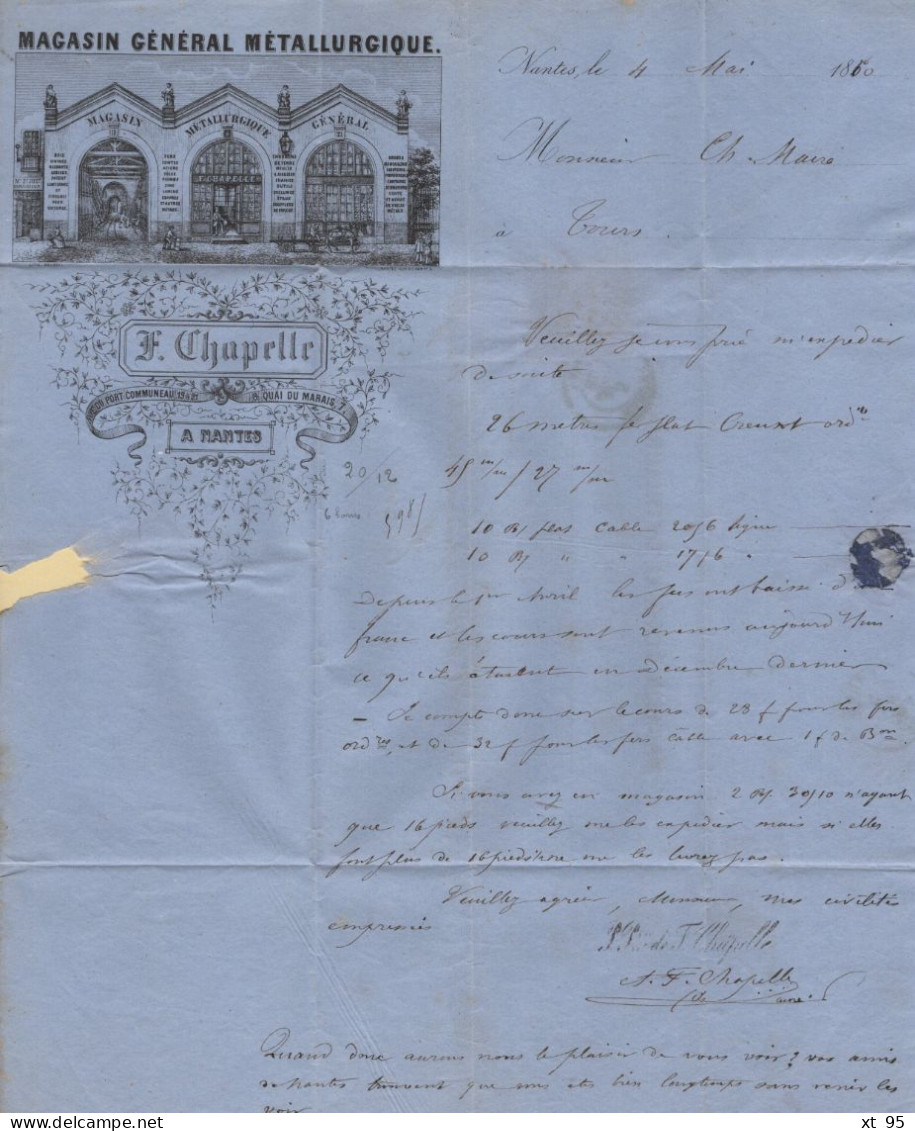 MAGASIN GÉNÉRAL MÉTALLURGIQUE.
MAGASIN MÉTALLURGIQUE GÉNÉRAL
F. CHAPELLE
F. Chapelle
PORT COMMUNEAU, 19 & 21 QUAI DU MARAIS, 7
A NANTES
Nantes, le 4 Mai 1860
Monsieur Ch. Maire
à Tours
Veuillez je vous prie m'expedier
de suite
26 metres fer plat Creusot ord
20/12 45 m/m / 27 m/m
10 B/ plat cable 20/6 lignes
10 B/ " " 17/6 "
Depuis le 1er Avril les fers ont baissé d'1
franc et les cours sont revenus aujourd'hui
ce qu'ils étaient en Décembre dernier
— Je compte donc sur le cours de 28 f pour les fers
ordres, et de 32 f pour les fers cable avec 1 f de Bon
Si vous avez en magasin 2 B/ 30/10 n'ayant
que 16 pieds veuillez me les expedier mais si elles
font plus de 16 pieds ne me les livrez pas.
Veuillez agréer, Monsieur, mes civilités
empressées
F. Chapelle
A. F. Chapelle
Quand donc aurons nous le plaisir de vous voir? vos amis
de Nantes trouvent que vous etes bien longtemps sans venir les
voir
xt 95